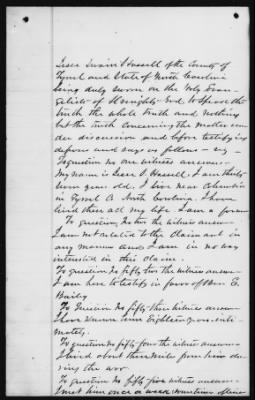 Jesse Swain Hassell of the County of
Tyrrel and State of North Carolina
being duly sworn on the Holy Evan-
gelists of Almighty God, to speak the
truth the whole truth and nothing
but the truth concerning the matter un-
der discussion and before testifying
deposes and says as follows - viz
To question no one witness answers -
My name is Jesse S Hassell, I am thirty
years old. I live near Columbia
in Tyrrel Co North Carolina. I have
lived there all my life. I am a farmer
To question no two the witness answers
I am not related to the claimant in
any manner and I am in no way
interested in this claim.
To question no fifty two the witness answers
I am here to testify in favor of
Bailey
To question no fifty three witness answers
I have known him Eighteen years inti-
mately.
To question no fifty four the witness answers
I lived about three miles from him du-
ring the war.
To question no fifty five witness answers -
I met him once a week sometimes